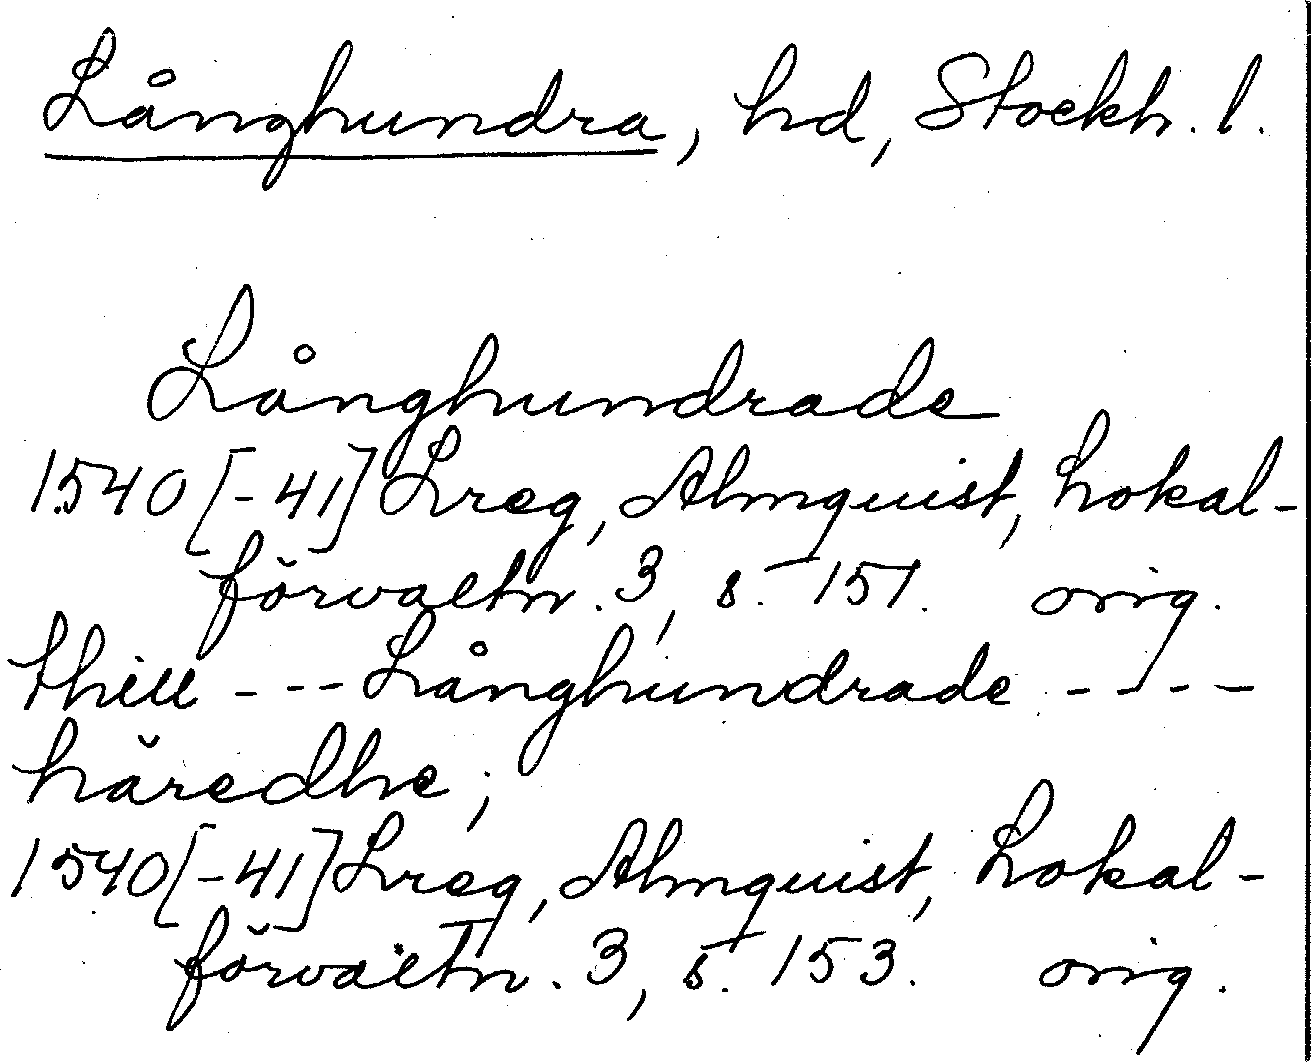 Långhundra, hd, Stockh. l.
Långhundrade
1540 [-41] Lreg, Almquist, Lokal-
förvaltn. 3, s. 151. orig.
thill --- Långhundrade ----
häredhe;
1540 [-41] Lreg, Almquist, Lokal-
förvaltn. 3, s. 153. orig.